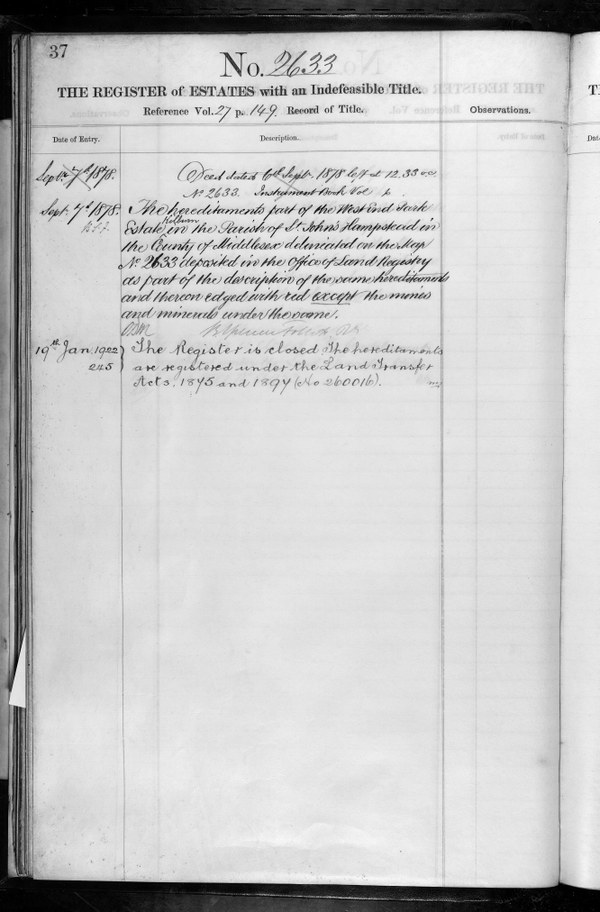 37
No. 2633
THE REGISTER of ESTATES with an Indefeasible Title.
Reference Vol. 27 p. 149. Record of Title.
Observations.
Date of Entry.
Description.
Sept. 7th 1878.
Deed dated 6th Sept. 1878 left at 12.33 o.c.
No 2633. Instrument Book Vol p.
Sept. 7th 1878.
The hereditaments part of the West End Park
Estate Kilburn in the Parish of St. John's Hampstead in
the County of Middlesex delineated on the Map
No 2633 deposited in the Office of Land Registry
as part of the description of the same hereditaments
and thereon edged with red except the mines
and minerals under the same.
19th Jan 1922
225
The Register is closed The hereditaments
are registered under the Land Transfer
Acts. 1875 and 1897 (No 260016).